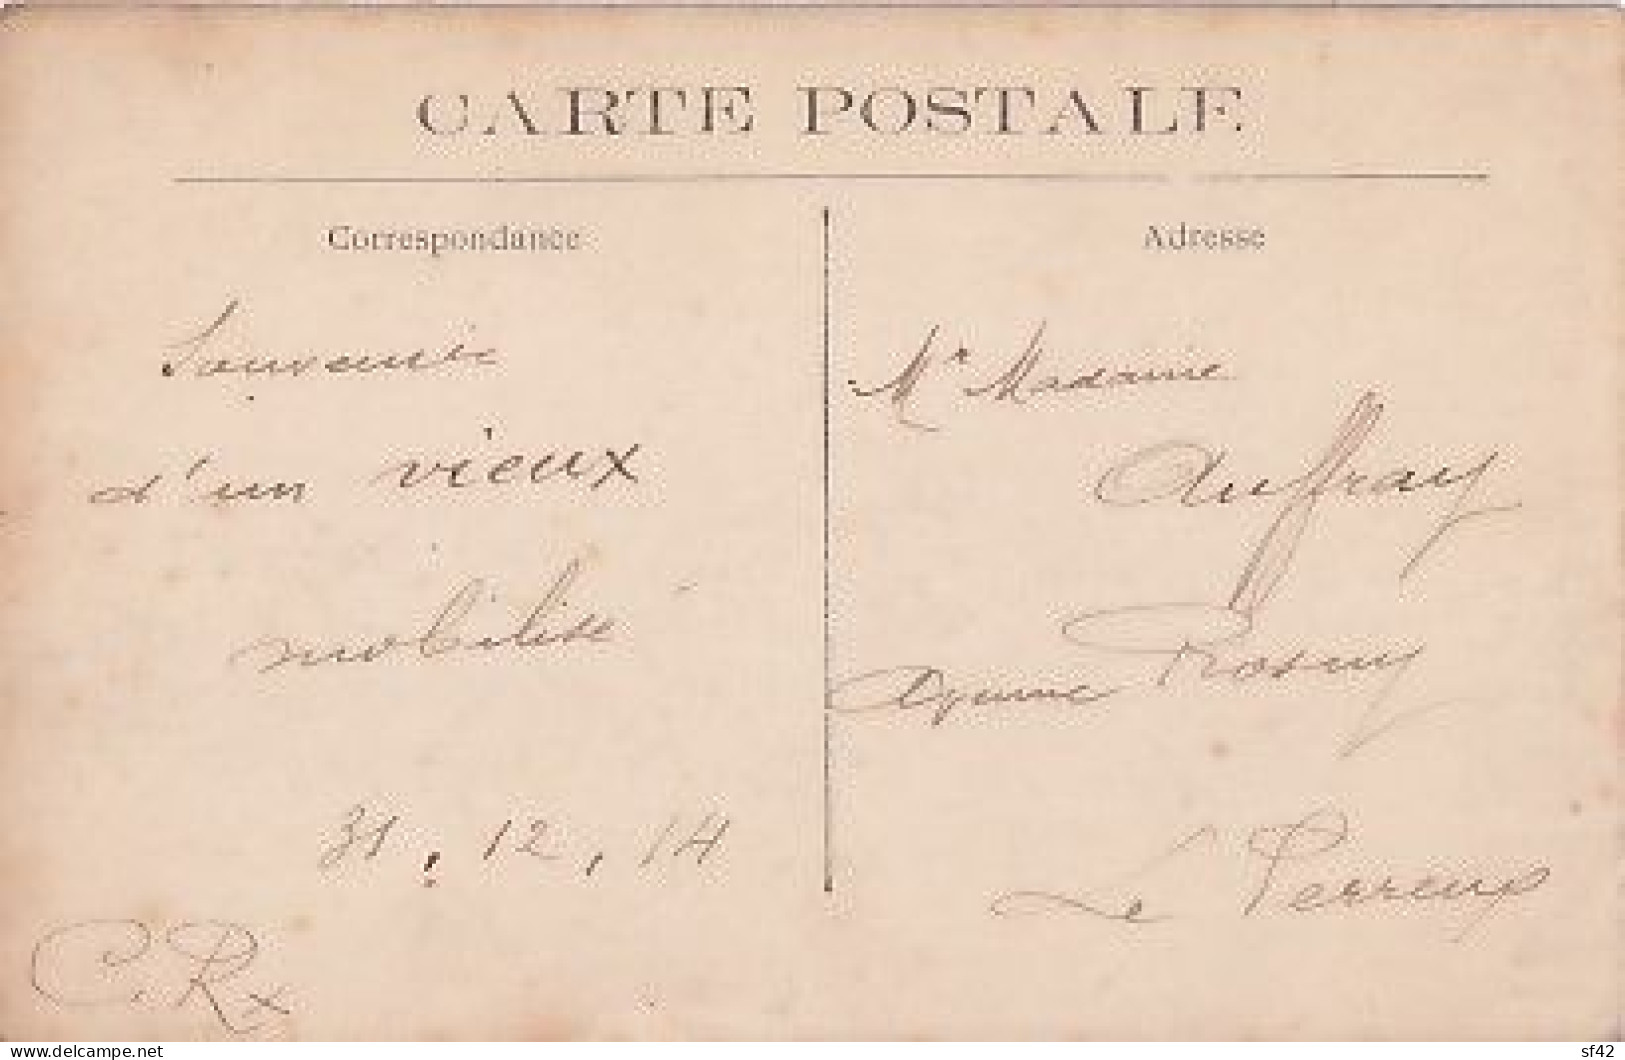 CARTE POSTALE
Correspondance
Souvenir
d'un vieux
mobilisé
31.12.14
C. Rx
Adresse
Mr Madame
Auffray
Avenue Rosny
Le Perreux
delcampe.net
sf42